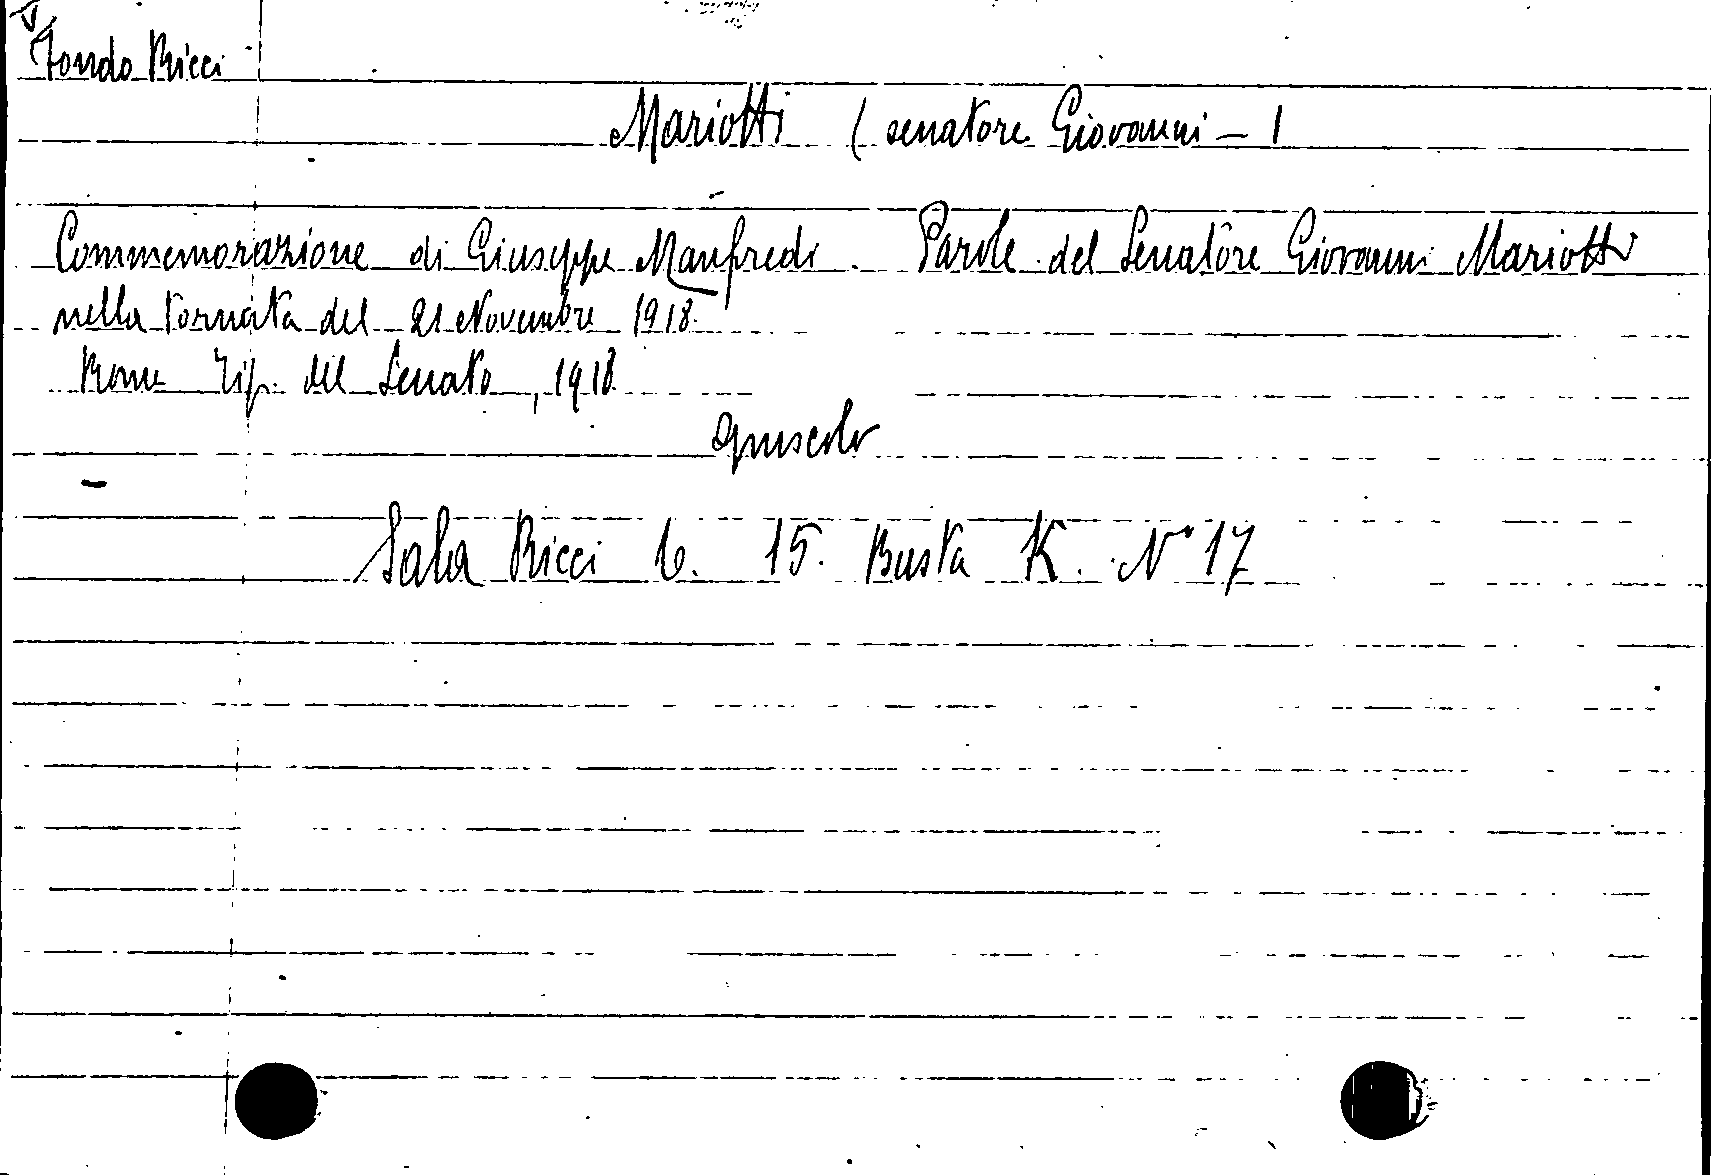 Fondo Ricci
Mariotti (senatore Giovanni - )
Commemorazione di Giuseppe Manfredi. Parole del Senatore Giovanni Mariotti
nella tornata del 21 Novembre 1918.
Roma Tip. del Senato, 1918
opuscolo
Sala Ricci 6. 15. Busta K. N° 17